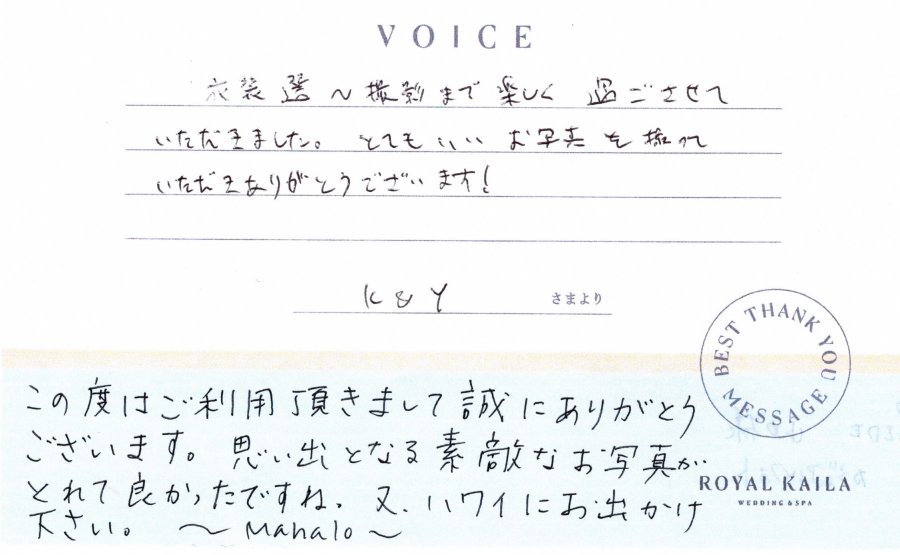 VOICE
衣装選〜撮影まで楽しく過ごさせて
いただきました。とてもいいお写真を撮って
いただきありがとうございます!
K & Y さまより
BEST THANK YOU MESSAGE
この度はご利用頂きまして誠にありがとう
ございます。思い出となる素敵なお写真が
とれて良かったですね。又、ハワイにお出かけ
下さい。 〜Mahalo〜
ROYAL KAILA
WEDDING & SPA